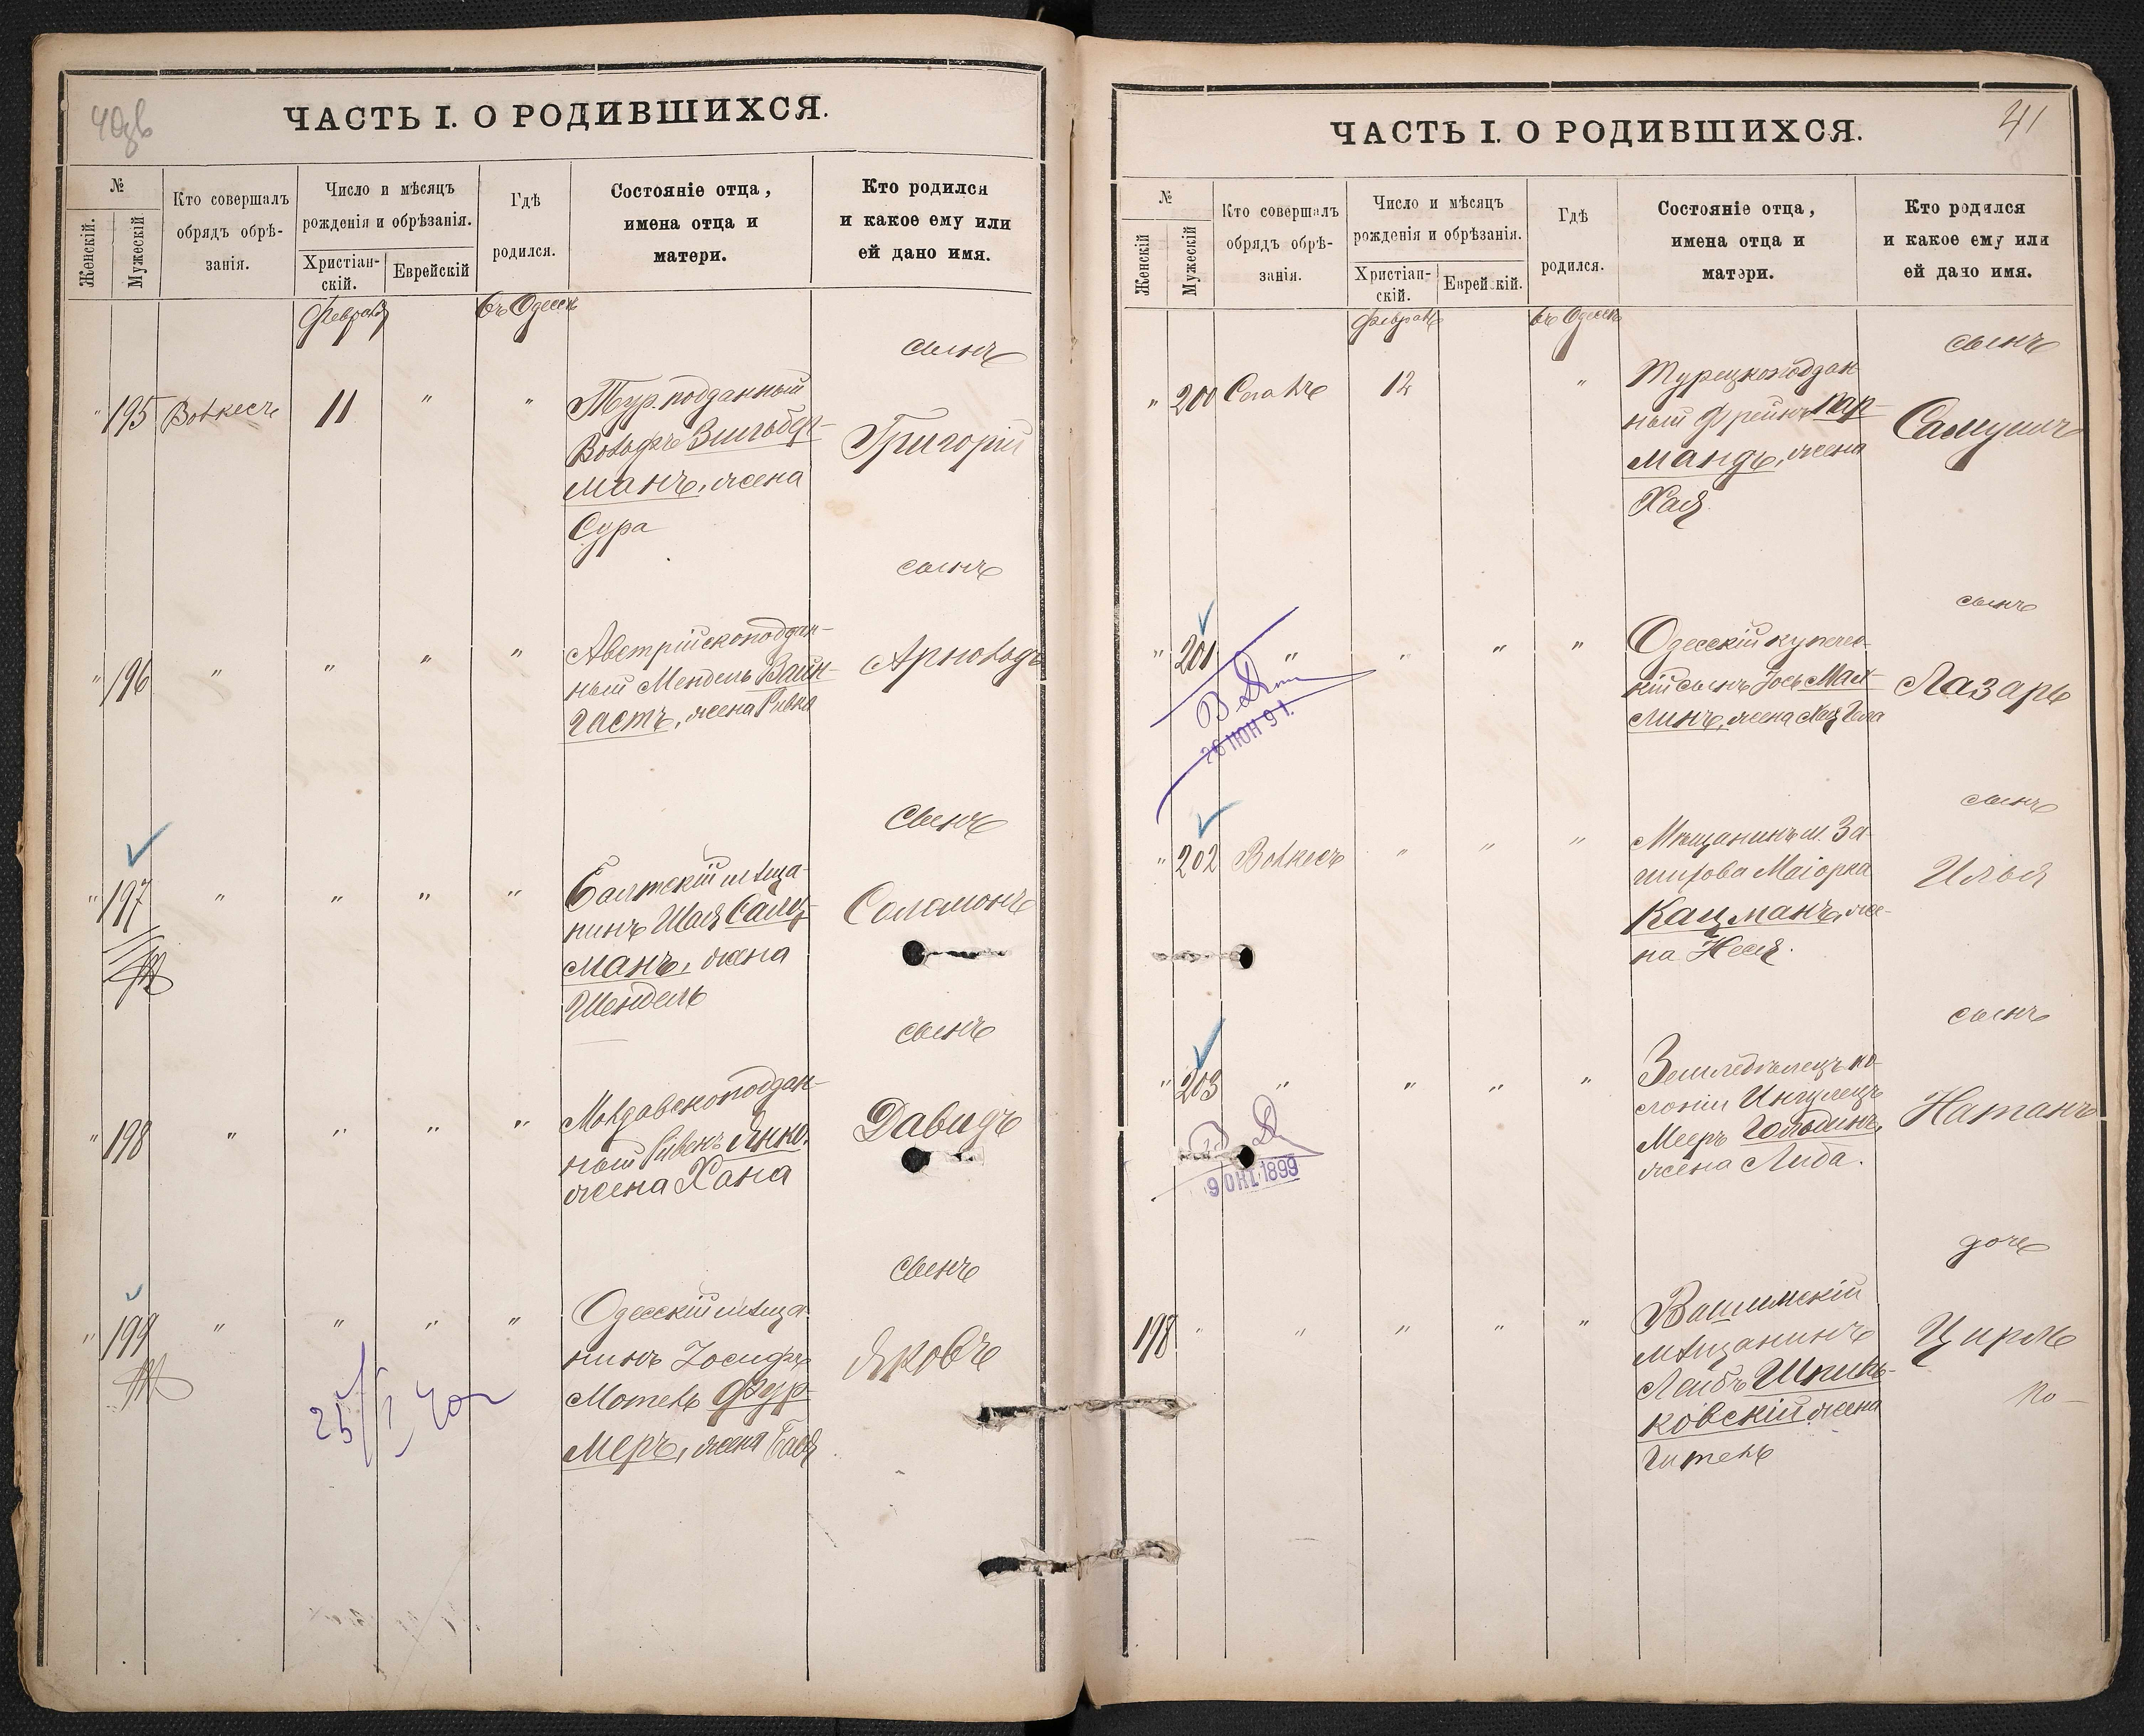 40об
ЧАСТЬ I. О РОДИВШИХСЯ.
№
Женскій.
Мужескій
Кто совершалъ
обрядъ обрѣ-
занія.
Число и мѣсяцъ
рожденія и обрѣзанія.
Христіан-
скій.
Еврейскій
Гдѣ
родился.
Состояніе отца,
имена отца и
матери.
Кто родился
и какое ему или
ей дано имя.
Февраль
въ Одессѣ
сынъ
" 195 11 " " Тур. подданный
Вольфъ Зильбер-
манъ, жена
Сура
Григорій
сынъ
" 196 " " " " Австрійскоподдан-
ный Мендель Вайн-
гастъ, жена Ривка
Арнольдъ
сынъ
" 197 " " " " Балтскій мѣща-
нинъ Шая Салиц-
манъ, жена
Шендель
Соломонъ
сынъ
" 198 " " " " Молдавскоподдан-
ный Рувенъ Янко,
жена Хана
Давидъ
сынъ
" 199 " " " " Одесскій мѣща-
нинъ Іосифъ
Мотель Фур-
меръ, жена Бася
Яковъ
41
ЧАСТЬ I. О РОДИВШИХСЯ.
№
Женскій
Мужескій
Кто совершалъ
обрядъ обрѣ-
занія.
Число и мѣсяцъ
рожденія и обрѣзанія.
Христіан-
скій.
Еврейскій.
Гдѣ
родился.
Состояніе отца,
имена отца и
матери.
Кто родился
и какое ему или
ей дано имя.
Февраль
въ Одессѣ
сынъ
" 200 12 " Турецкоподдан-
ный Фроимъ Кар-
мандъ, жена
Хая.
Самуилъ
сынъ
" 201 " " " " Одесскій купече-
скій сынъ Іось Мал-
линъ, жена
Лазарь
26 ІЮН 91.
сынъ
" 202 " " " Мѣщанинъ м. За-
шкова Маіорка
Кацманъ, же-
на Неся.
Илья
сынъ
" 203 " " " " Земледѣлецъ ко-
лоніи Ингулецъ
Мееръ Голодинъ,
жена Лида.
Натанъ
9 ОКТ 1899
дочь
198 " " " " " мѣщанинъ
Лейбъ Шпиль-
ковскій жена
Гитель
Цирль